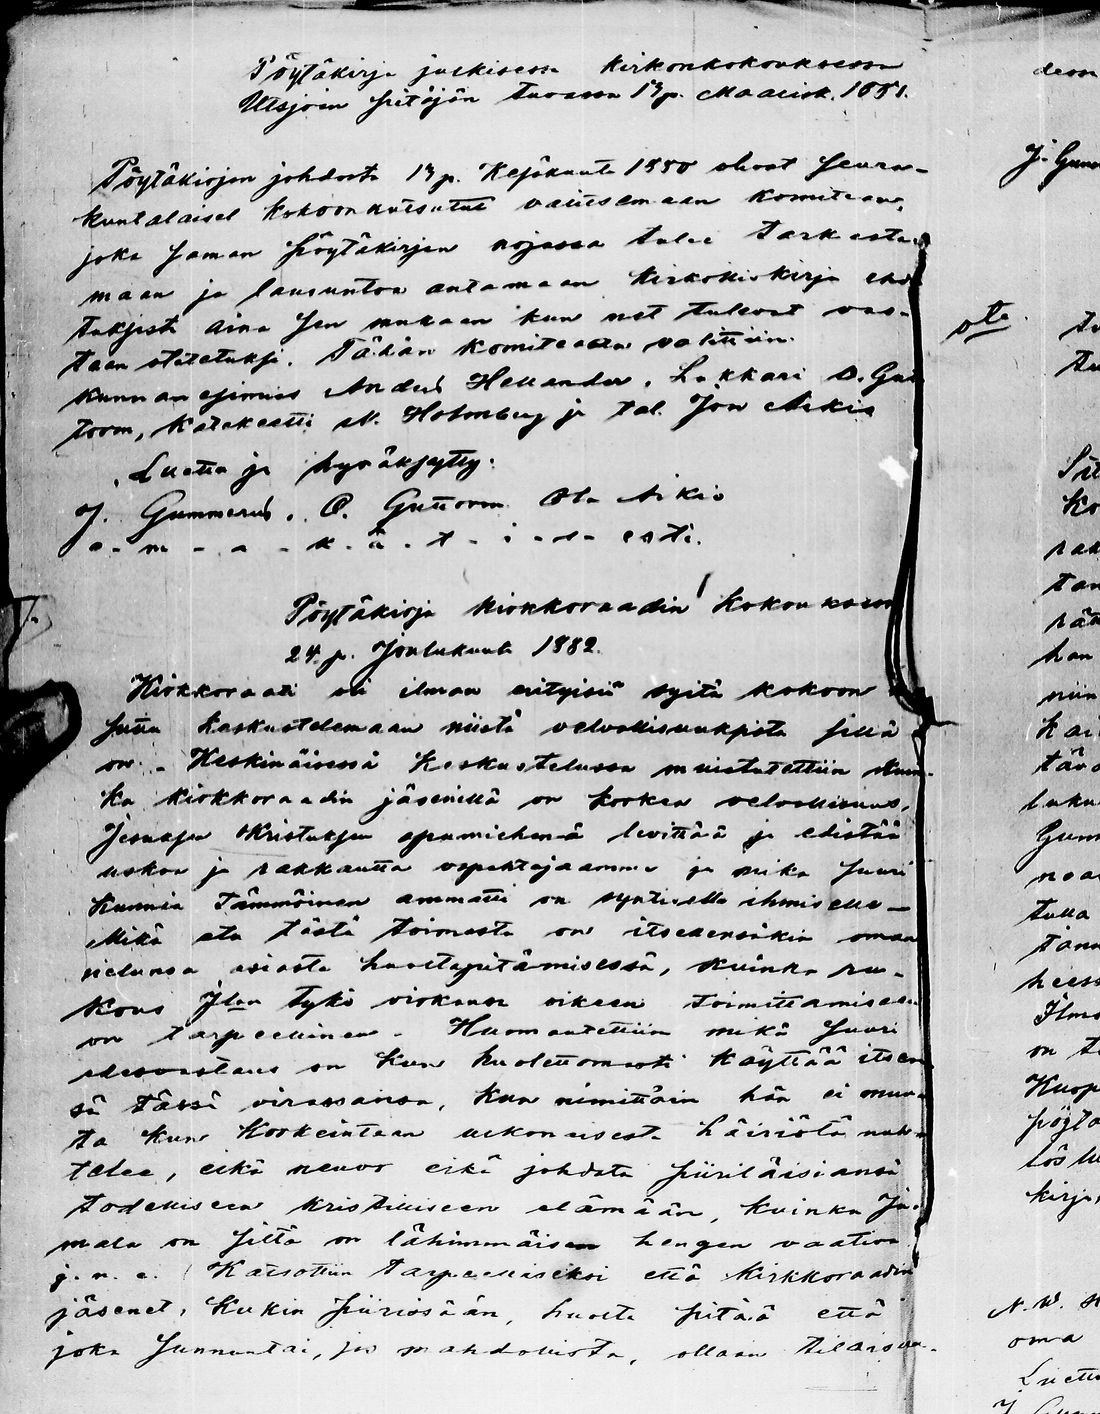 Pöytäkirja julkisessa kirkonkokouksessa
Utsjoen pitäjän tuvassa 13p. Maalisk. 1881.
Pöytäkirjan johdosta 13 p. Kesäkuuta 1880 olivat seura-
kuntalaiset kokoonkutsutut valitsemaan komitean,
joka saman pöytäkirjan nojassa tulee tarkasta-
maan ja lausuntoa antamaan kirkolliskirja ehdo-
tuksista aina sen mukaan kun net tulevat vas-
taan otetetuksi. Tähän komiteaan valittiin
kunnan esimies And. Hellander, Lukkari O. Gut-
torm, Katekeetti N. Holmberg ja tal. Jon Aikio
Luettu ja hyväksytty.
J. Gummerus. O. Guttorm Ola Aikio
o - m - a - k - ä - t - i - s - esti.
Pöytäkirja kirkkoraadin kokouksessa
24. p. Joulukuuta 1882.
Kirkkoraati oli ilman erityisiä syitä kokoon
juttu keskustelemaan niistä velvollisuuksista sillä
on. Keskinäisessä keskustelussa muistutettiin kuin-
ka kirkkoraadin jäsenillä on korkea velvollisuus,
Jesuksen Kristuksen apumiehenä levittää ja edistää
uskoa ja rakkautta vapahtajaamme ja mikä suuri
kunnia tämmöinen ammatti on syntisellä ihmisellä —
Mikä etu tästä toimesta on itsellensäkin oman
sielunsa asiasta huoltapitämisessä, kuinka ru-
kous Jlan tykö virkansa oikeen toimittamiseen
on tarpeellinen. Huomautettiin mikä suuri
edesvastaus on kun huolettomasti käyttää itsen-
sä tässä virassansa, kun nimittäin hän ei muu-
ta kun korkeintaan ulkonaisesta häiriöstä nuh-
telee, eikä neuvo eikä johdata piiriläisiänsä
todelliseen kristilliseen elämään, kuinka Ju-
mala on siltä on lähimmäisen hengen vaativa
j. n. e. Katsottiin tarpeelliseksi että kirkkoraadin
jäsenet, kukin piirissään, huolta pitää että
joka sunnuntai, jos mahdollista, ollaan tilaisuu-
dessa
J. Gum
ote
Kuop
pöytä
kirja
N. W.
oma
Luettu